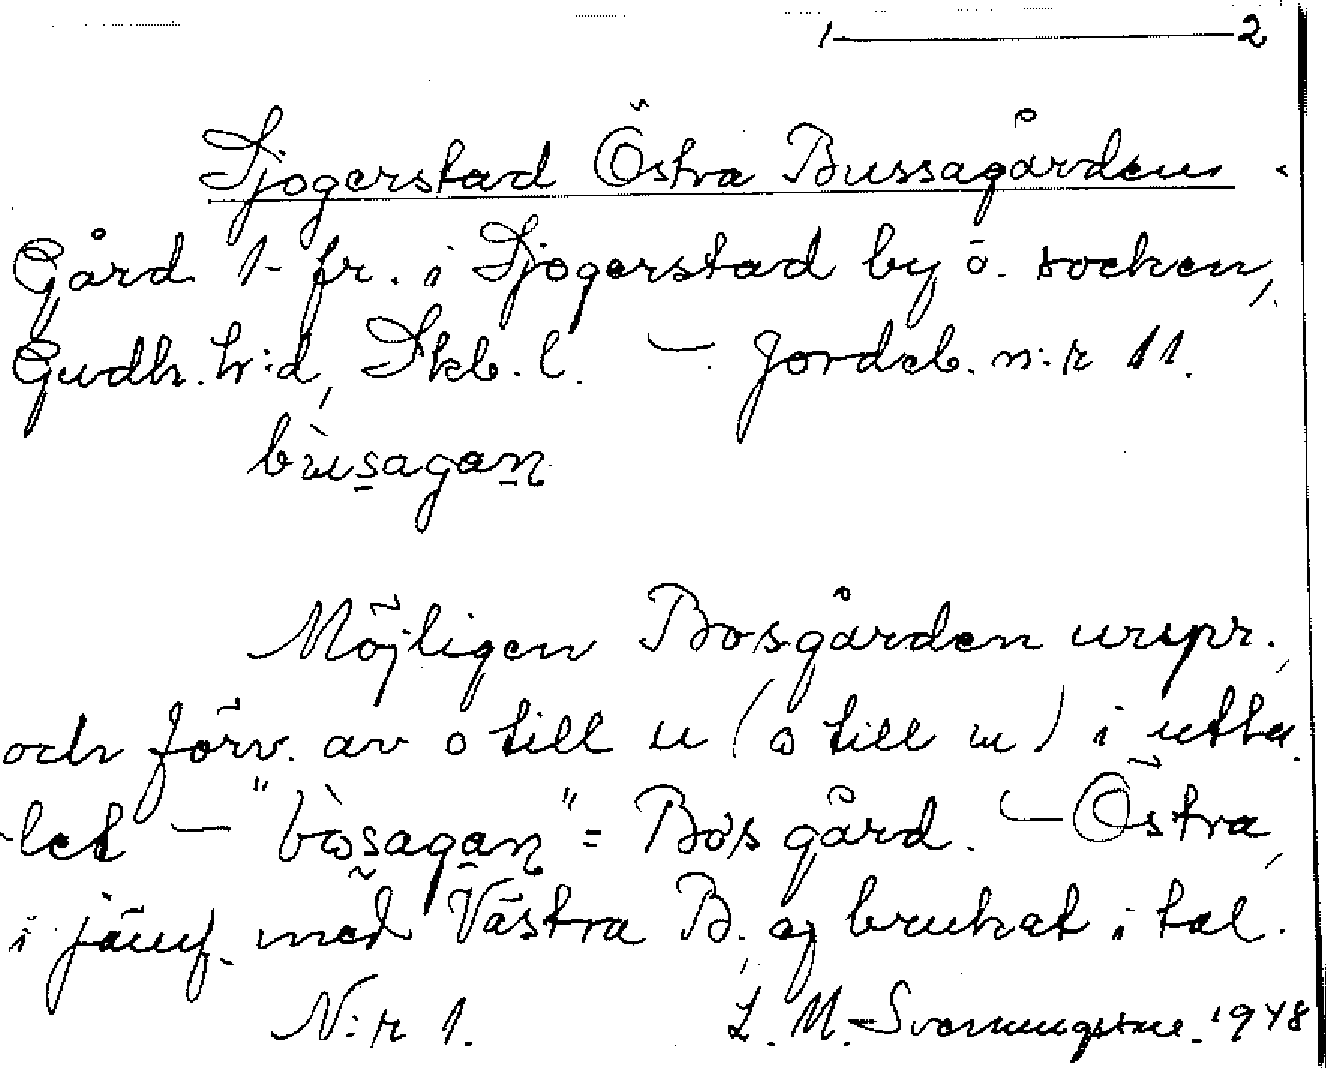 1 — 2
Sjogerstad Östra Bussagården.
Gård 1- fr. i Sjogerstad by o. socken,
Gudh. h:d, Skb. l. — Jordeb. n:r 11.
bùsagan
Möjligen Bosgården urspr.,
och förv. av o till u (o till u) i utta-
let — "bòsagan" = Bos gård. — Östra,
i jämf. med Västra B., ej brukat i tal.
N:r 1. L. M. Svenungsson. 1948